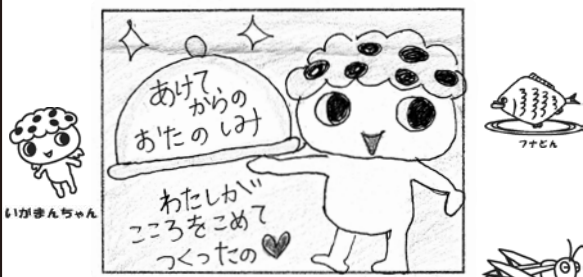 あけて
からの
おたのしみ
わたしが
こころをこめて
つくったの
いがまんちゃん
フナどん